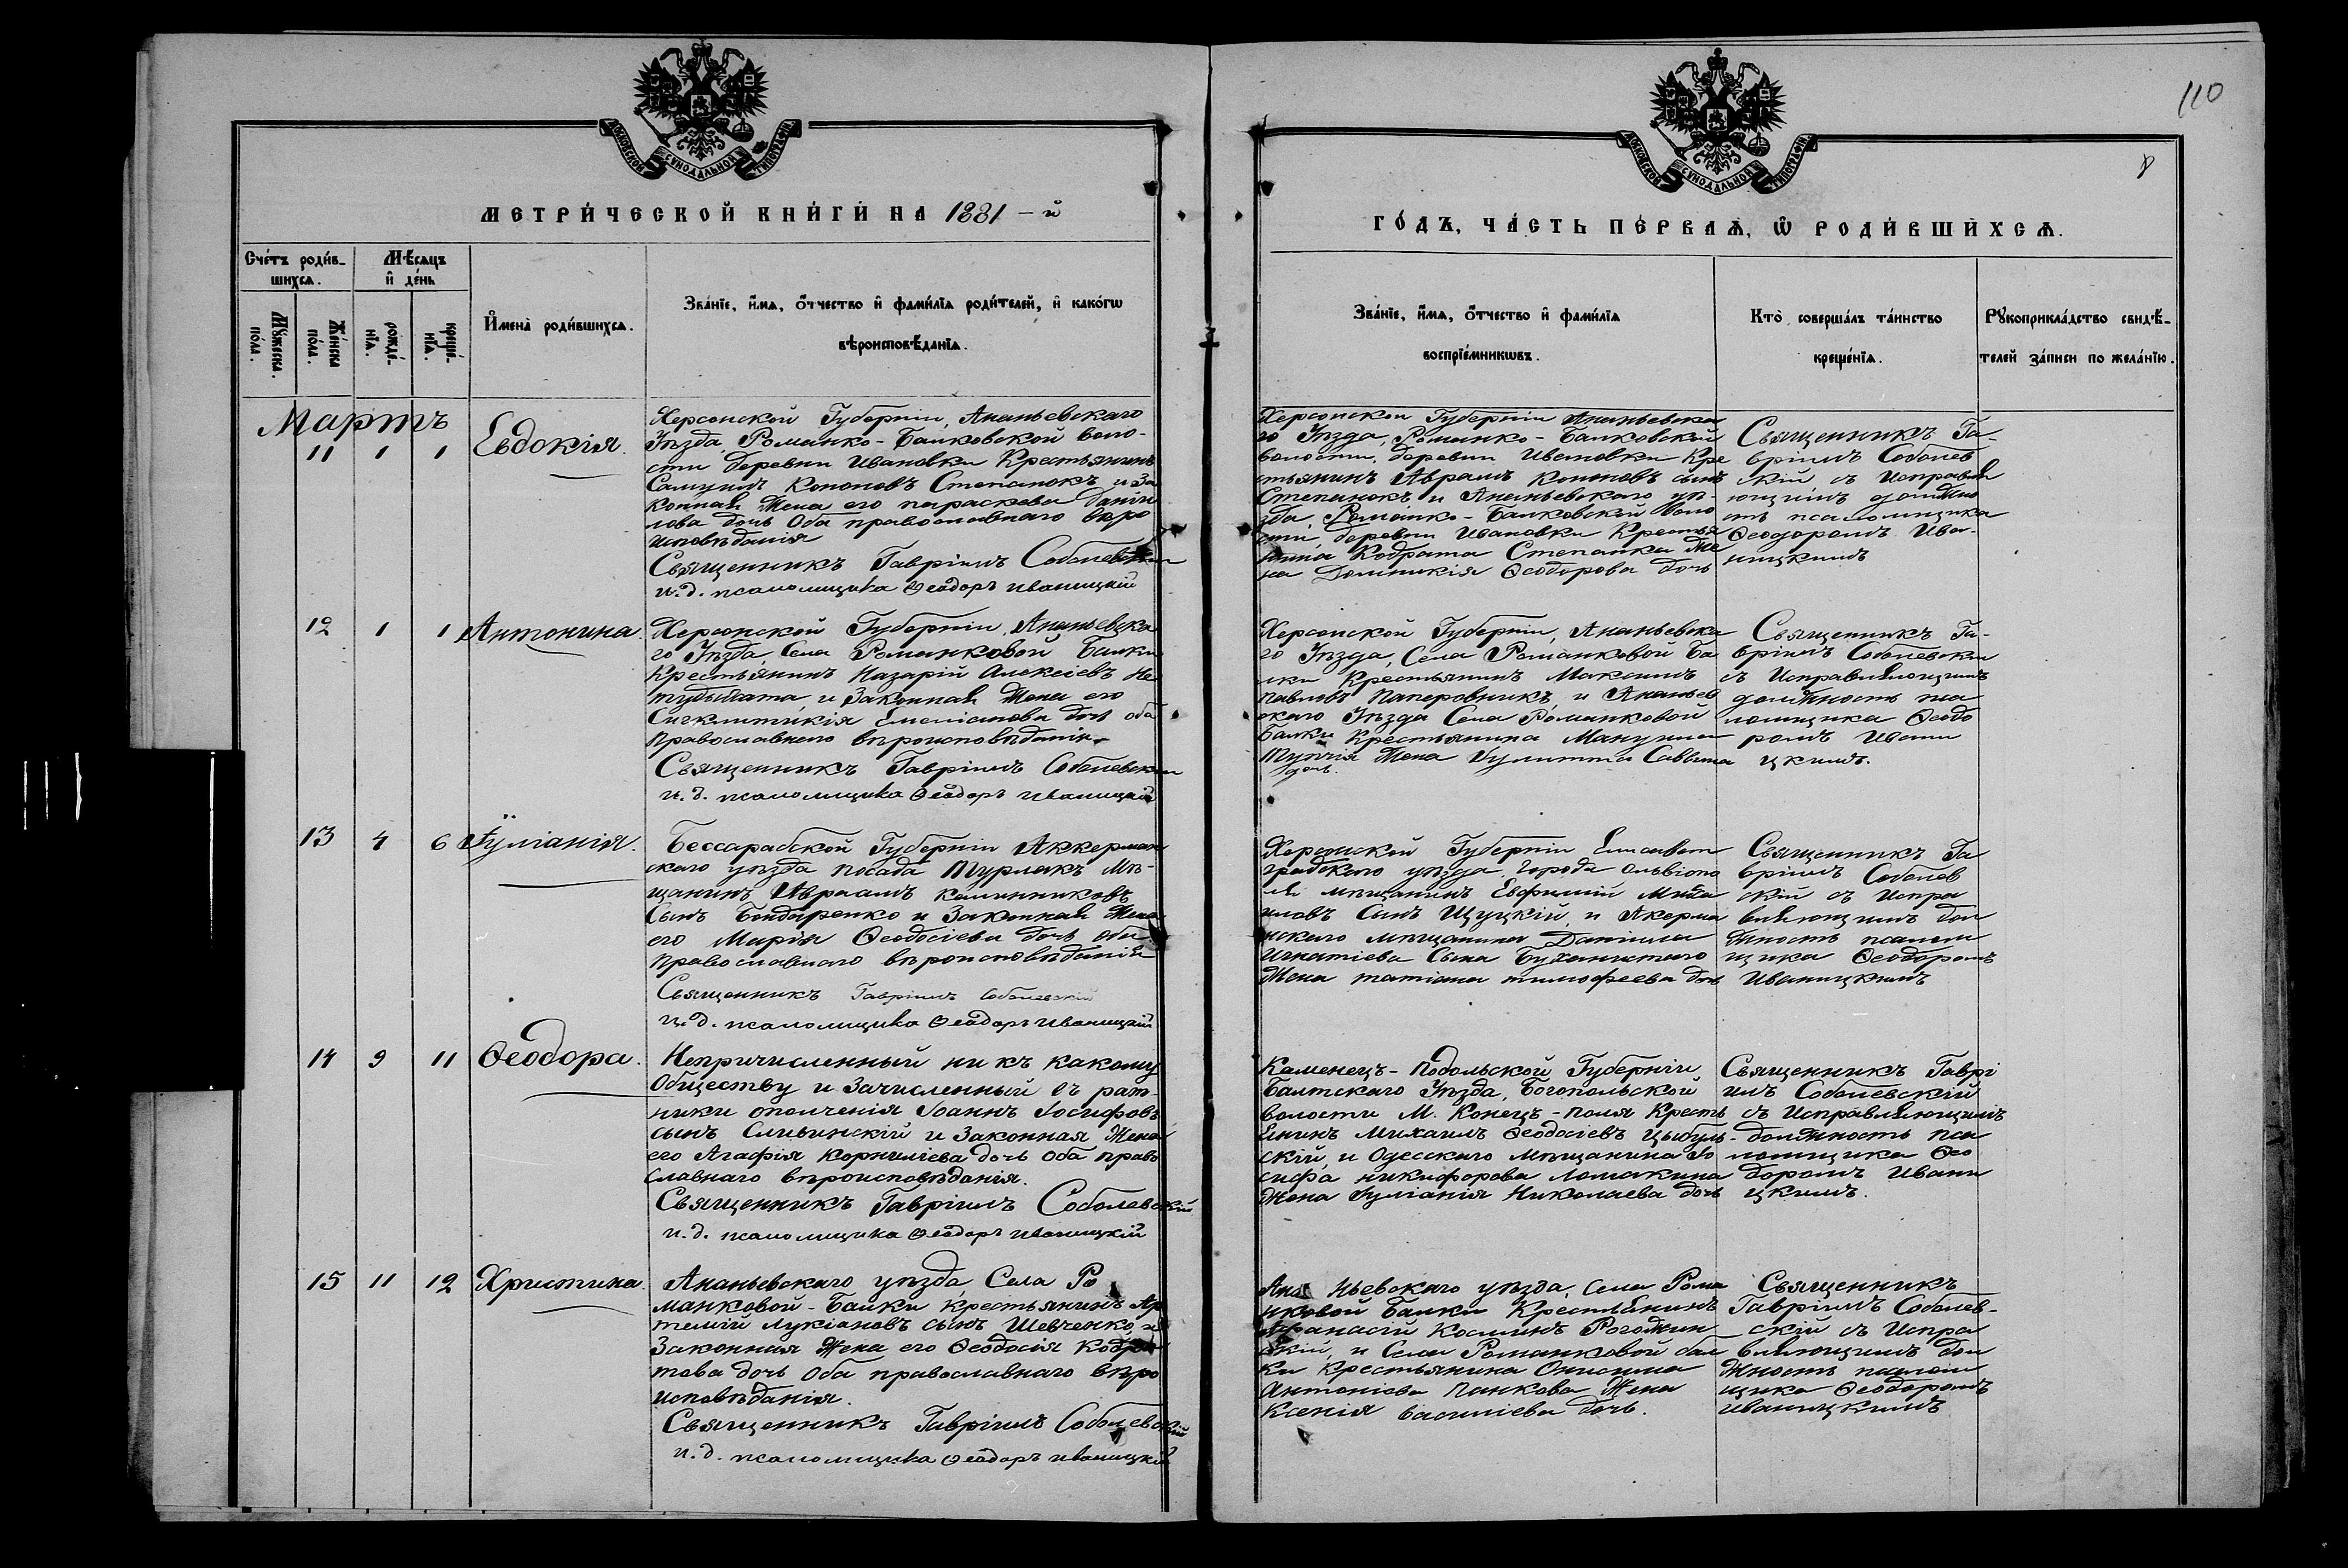 110
8
МОСКОВСКОЙ СѴНОДАЛЬНОЙ ТИПОГРАФІИ
МОСКОВСКОЙ СѴНОДАЛЬНОЙ ТИПОГРАФІИ
МЕТРИ́ЧЕСКОЙ КНИ́ГИ НА 1881 - й
ГО́ДЪ, ЧА́СТЬ ПЕ́РВАѦ, Ѡ РОДИ́ВШИХСѦ.
Сче́тъ роди́в-
шихсѧ.
Мѣ́сяцъ
и де́нь
Мꙋ́жеска по́ла.
Же́нска по́ла.
рожде́-нїѧ.
креще́-нїѧ.
И҆мена̀ роди́вшихсѧ.
Зва́нїе, и҆́мѧ, ѻ҆́тчество и҆ фами́лїѧ роди́телей, и҆ како́гѡ
вѣроисповѣ́данїѧ.
Зва́нїе, и҆́мѧ, ѻ҆́тчество и҆ фами́лїѧ
воспрїе́мникѡвъ.
Кто̀ соверша́лъ та́инство
креще́нїѧ.
Рꙋкоприкла́дство свидѣ́-
телей за́писи по жела́нїю.
Мартъ
11 1 1 Евдокія.
Херсонской Губерніи, Ананьевскаго
Уѣзда, Романко-Балковской воло-
сти деревни Ивановки Крестьянинъ
Самуилъ Кононовъ Степанокъ и за
конная Жена его параскева даніи
лова дочь Оба православнаго вѣро
исповѣданія
Священникъ Гавріилъ Соболевскій
и.д. псаломщика Ѳеодоръ иваницкій
Херсонской Губерніи Ананьевска
го Уѣзда, Романко-Балковской
волости, деревни Ивановки Кре
стьянинъ Авраамъ Кононовъ сынъ
Степанокъ и Ананьевскаго уѣ-
зда, Романко-Балковской Воло
сти, деревни Ивановки Крестья
нина Кодрата Степанка Же
на Домникія Ѳеодорова дочь
Священникъ Га-
вріилъ Соболев
скій съ Исправля
ющимъ должно
сть псаломщика
Ѳеодоромъ Ива-
ницкимъ
12 1 1 Антонина.
Херсонской Губерніи, Ананьевска
го Уѣзда, Села Романковой Балки
Крестьянинъ Назарій Алексіевъ Не
тудыхата, и Законная Жена его
Синклитикія Емеліанова дочь оба
Православнаго вѣроисповѣданія
Священникъ Гавріилъ Соболевскій
и.д. псаломщика Ѳеодоръ иваницкій
Херсонской Губерніи, Ананьевска
го Уѣзда, Села Романковой Ба
лки Крестьянинъ Максимъ
Павловъ Паперовникъ и Ананьев
скаго Уѣзда Села Романковой
Балки Крестьянина Мануила
Жена Іулитта Саввина
дочь.
Священникъ Га-
вріилъ Соболевскій
съ Исправляющимъ
должность пса
ломщика Ѳеодо
ромъ Ивани
цкимъ.
13 4 6 Іуліанія.
Бессарабской Губерніи Аккерман
скаго уѣзда посада Турлакъ Мѣ-
щанинъ Авраамъ калинниковъ
Сынъ Бондаренко и Законная Жена
его Марія Ѳеодосіева дочь оба
православнаго вѣроисповѣданія
Священникъ Гавріилъ Соболевскій
и.д. псаломщика Ѳеодоръ иваницкій
Херсонской Губерніи Елисавет
градскаго уѣзда. Города ольвіопо
ля мѣщанинъ Евфимій Миха
иловъ Сынъ Щуцкій и Акерма
нскаго мѣщанина Даніила
Игнатіева Сына
Жена татіана тимофеева дочь
Священникъ Га
вріилъ Соболев
скій съ Испра
вляющимъ дол
жность псалом
щика Ѳеодоромъ
Иваницкимъ
14 9 11 Ѳеодора.
Непричисленный ни къ какому
Обществу и Зачисленный въ рат-
ники ополченія Іоаннъ Іосифовъ
сынъ Сливинскій и Законная Жена
его Агафія Корниліева дочь Оба право
славнаго вѣроисповѣданія.
Священникъ Гавріилъ Соболевскій
и.д. псаломщика Ѳеодоръ иваницкій
Каменецъ-Подольской Губерніи
Балтскаго Уѣзда, Богопольской
волости М. Конецъ-поля Кресть
янинъ Михаилъ Ѳеодосіевъ Цыбуль-
скій, и Одесскаго Мѣщанина Іо
сифа никифорова Ломакина
Жена Іуліанія Николаева дочь
Священникъ Гаврі
илъ Соболевскій
съ Исправляющимъ
должность пса
ломщика Ѳео
доромъ Ивани
цкимъ.
15 11 12 Христина
Ананьевскаго уѣзда, Села Ро
манковой-Балки крестьянинъ Ар
темій Лукіановъ сынъ Шевченко и
Законная Жена его Ѳеодосія Кодра
това дочь Оба православнаго вѣро
исповѣданія.
Священникъ Гавріилъ Соболевскій
и.д. псаломщика Ѳеодоръ иваницкій
Ананьевскаго уѣзда, Села Рома
нковой Балки Крестьянинъ
Афанасій Косминъ Рогожин
скій, и Села Романковой бал
ки крестьянина Онисима
Антоніева Панкова Жена
Ксенія василіева дочь.
Священникъ
Гавріилъ Соболев-
скій съ Испра
вляющимъ дол
жность псалом
щика Ѳеодоромъ
иваницкимъ